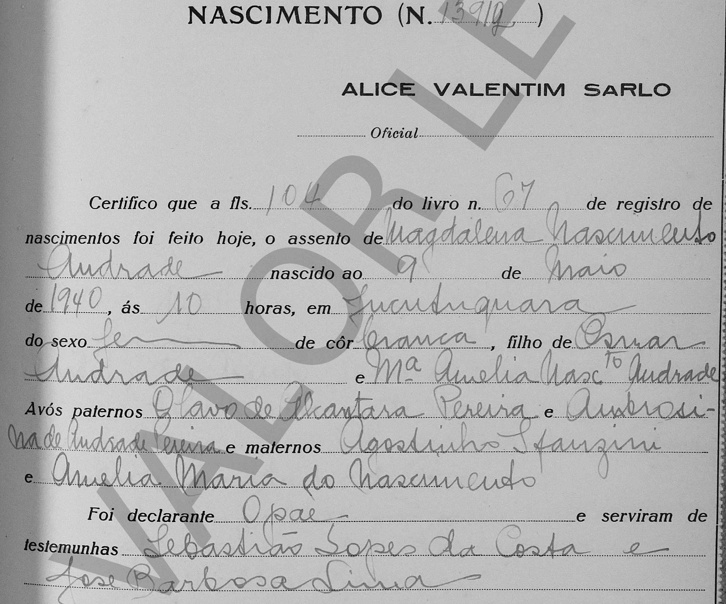 NASCIMENTO (N. 13919 )
ALICE VALENTIM SARLO
Oficial
Certifico que a fls. 104 do livro n. 67 de registro de
nascimentos foi feito hoje, o assento de Magdalena Nascimento
Andrade nascido ao 9 de Maio
de 1940, ás 10 horas, em Jucutuquara
do sexo fem de côr branca, filho de Osmar
Andrade e Mª Amelia Nascto Andrade
Avós paternos Olavo de Alcantara Pereira e Ambrosi-
na de Andrade Pereira e maternos Agostinho Stanzini
e Amelia Maria do Nascimento
Foi declarante O pae, e serviram de
testemunhas Sebastião Lopes da Costa e
Jose Barbosa Lima
VALOR LE